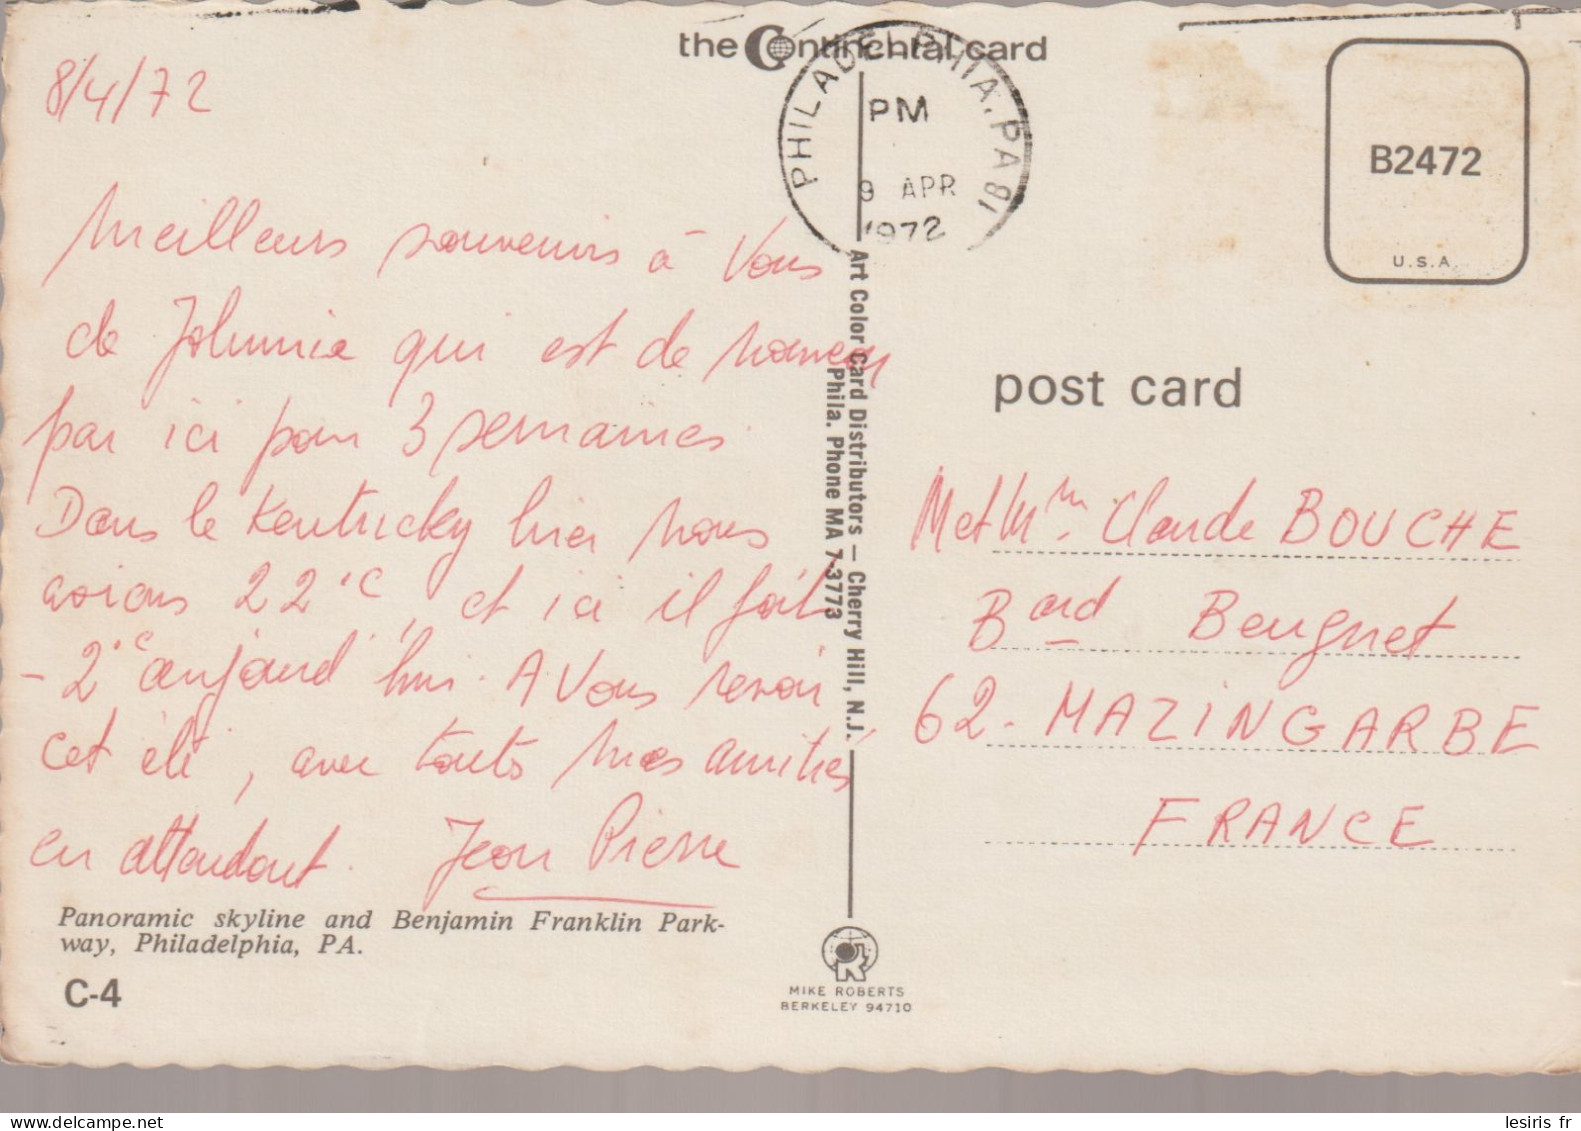 the Continental card
8/4/72
PHILADELPHIA, PA 191
PM
9 APR
1972
B2472
U.S.A.
Meilleurs souvenirs à Vous
de Johnnie qui est de nouveau
par ici pour 3 semaines.
Dans le Kentucky hier nous
avions 22°C, et ici il fait
-2°C aujourd'hui. A Vous revoir
cet été, avec toutes mes amitiés
en attendant. Jean Pierre
Panoramic skyline and Benjamin Franklin Park-
way, Philadelphia, PA.
C-4
Art Color Card Distributors — Cherry Hill, N.J.
Phila. Phone MA 7-3773
MIKE ROBERTS
BERKELEY 94710
post card
M et Mme Claude BOUCHE
Bard Beugnet
62 - MAZINGARBE
FRANCE
lesiris fr